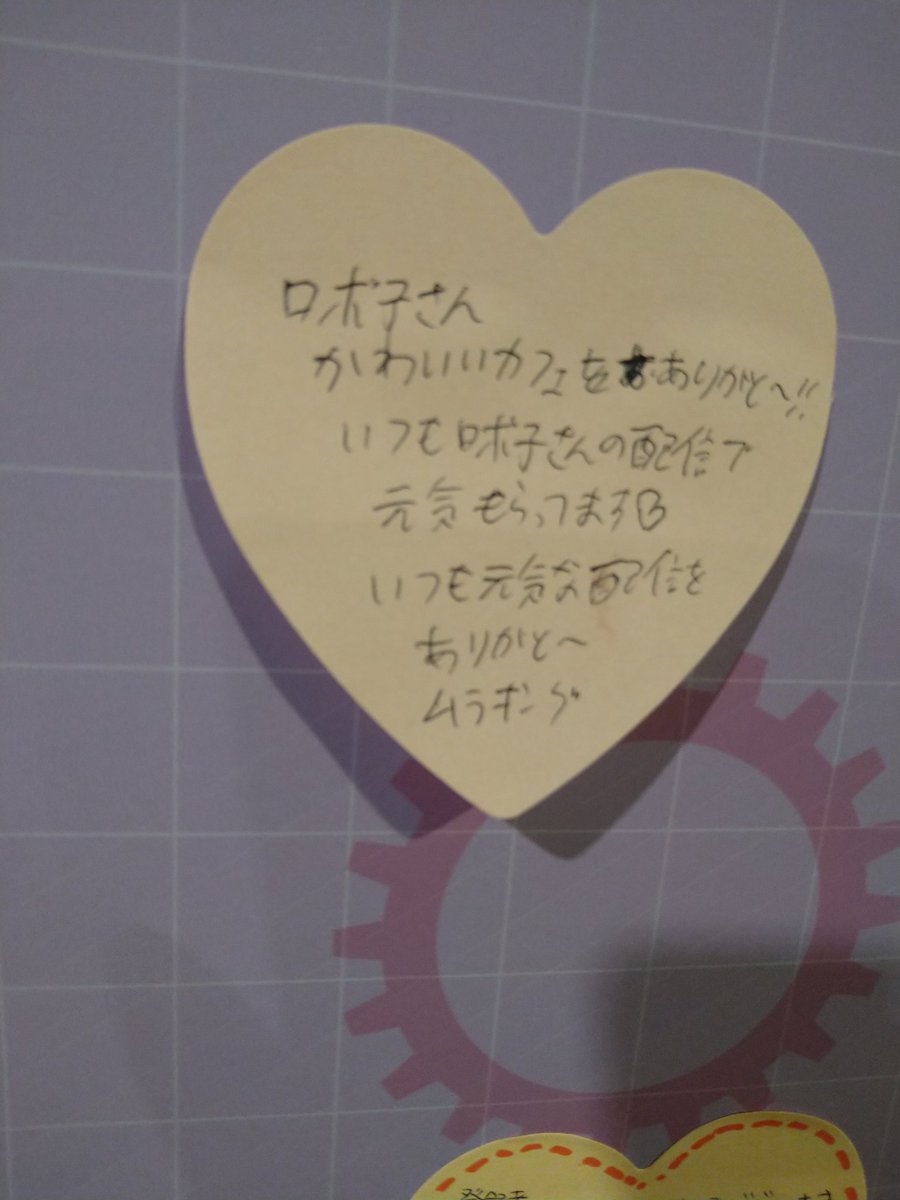 ロボ子さん
かわいいカフェをありがと〜!!
いつもロボ子さんの配信で
元気もらってます♡
いつも元気な配信を
ありがと〜
ムラギング